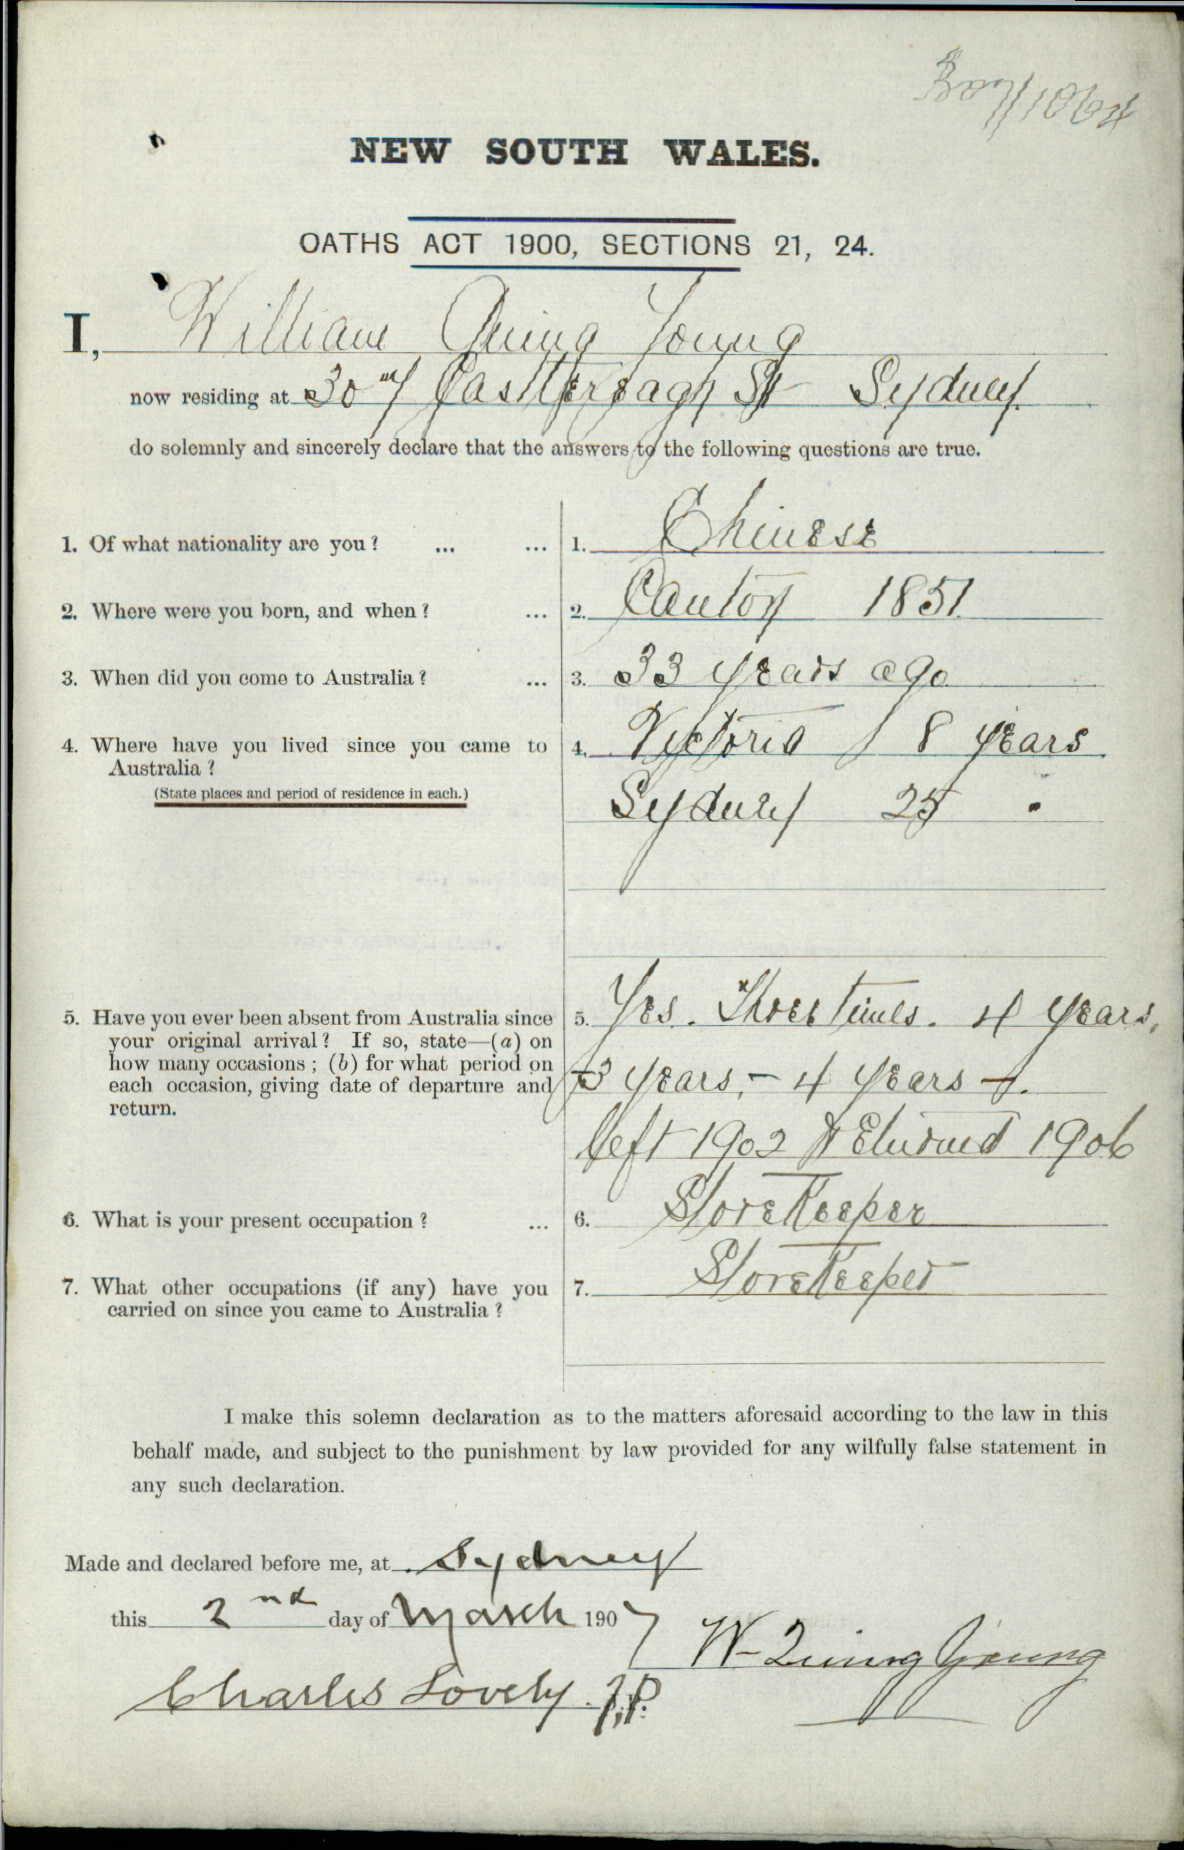 NEW SOUTH WALES.
OATHS ACT 1900, SECTIONS 21, 24.
I, William Quing Young
now residing at Castlereagh St Sydney
do solemnly and sincerely declare that the answers to the following questions are true.
1. Of what nationality are you? ... ... 1. Chinese
2. Where were you born, and when? ... 2. Canton 1851
3. When did you come to Australia? ... 3. 33 years ago
4. Where have you lived since you came to 4. Victoria 8 years
Australia?
(State places and period of residence in each.)
Sydney 25 "
5. Have you ever been absent from Australia since 5. Yes. Three times. 4 years,
your original arrival? If so, state—(a) on
how many occasions; (b) for what period on
each occasion, giving date of departure and 3 years, - 4 years -.
return.
left 1902 Returned 1906
6. What is your present occupation? ... 6. StoreKeeper
7. What other occupations (if any) have you 7. StoreKeeper
carried on since you came to Australia?
I make this solemn declaration as to the matters aforesaid according to the law in this
behalf made, and subject to the punishment by law provided for any wilfully false statement in
any such declaration.
Made and declared before me, at Sydney
this 2nd day of March 1907
W- Quing Young
Charles Lovely. J.P.